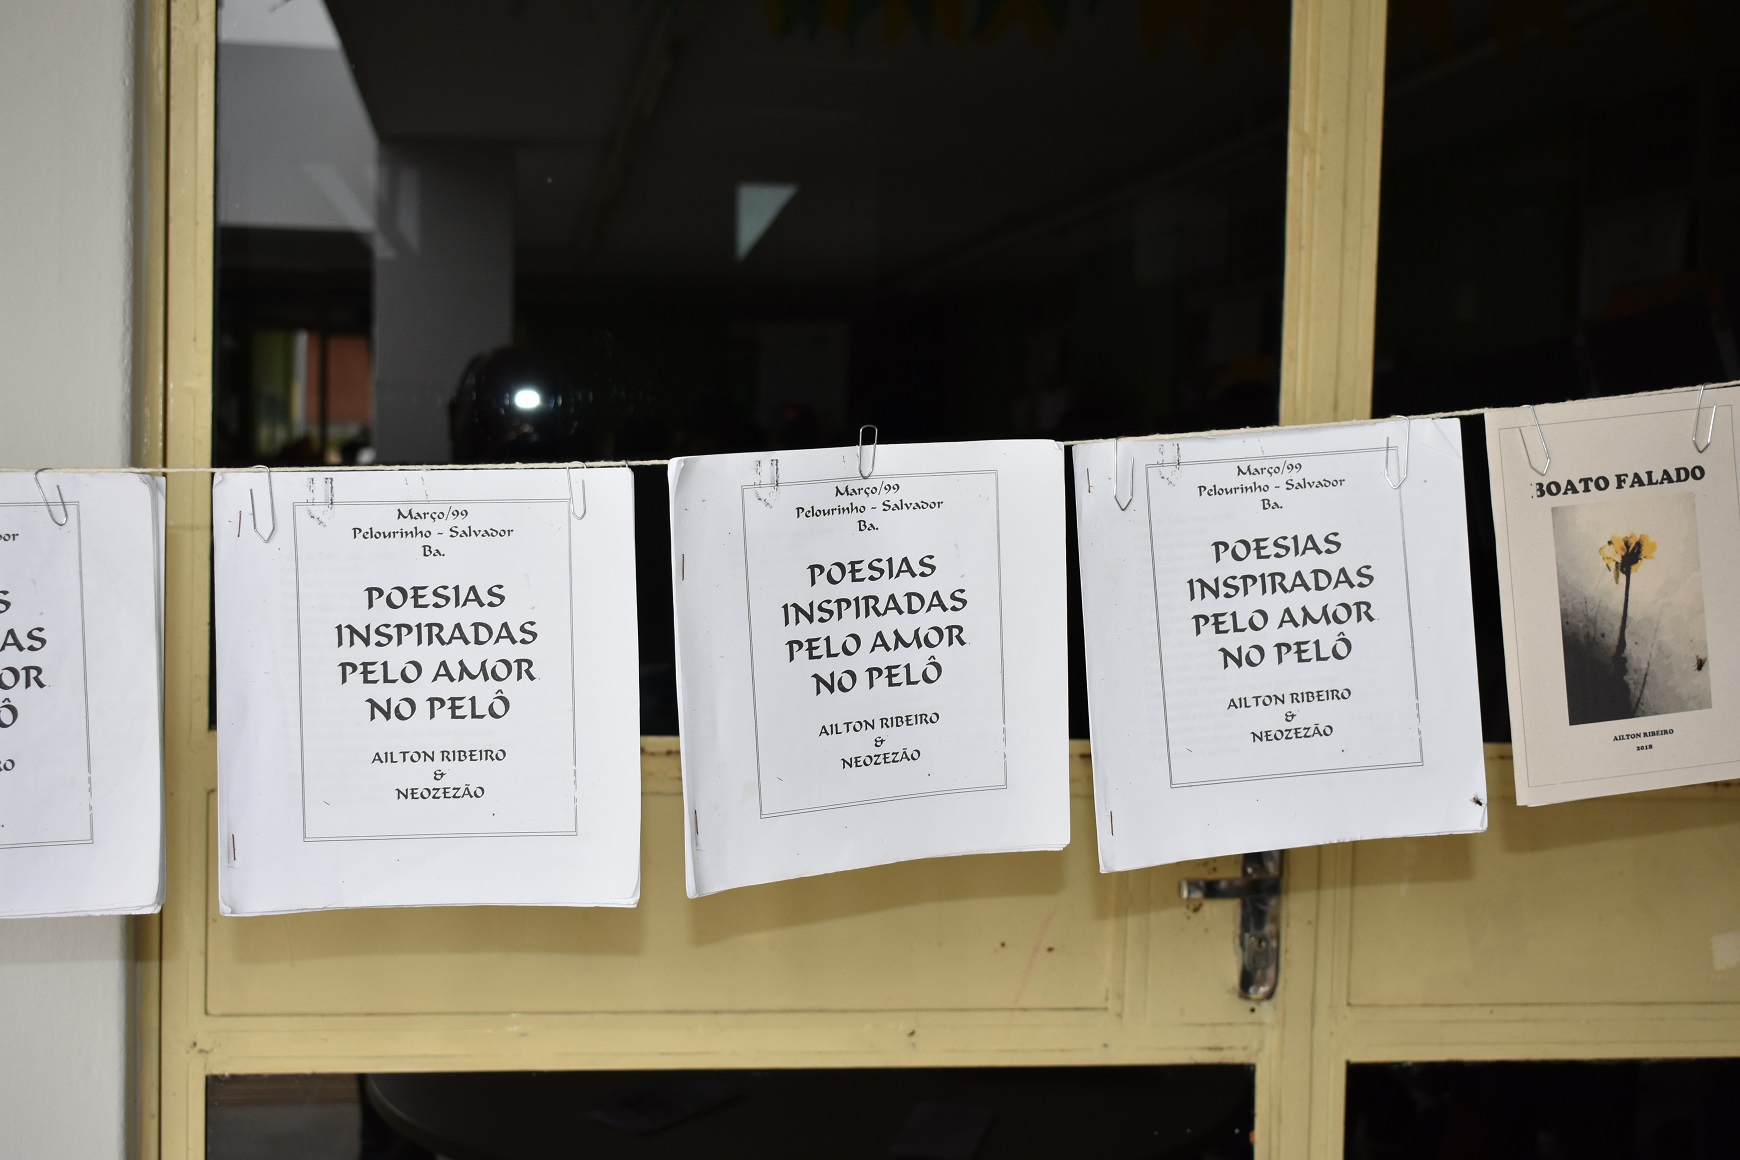 or
S
AS
OR
Ô
RO
Março/99
Pelourinho - Salvador
Ba.
POESIAS
INSPIRADAS
PELO AMOR
NO PELÔ
AILTON RIBEIRO
&
NEOZEZÃO
Março/99
Pelourinho - Salvador
Ba.
POESIAS
INSPIRADAS
PELO AMOR
NO PELÔ
AILTON RIBEIRO
&
NEOZEZÃO
Março/99
Pelourinho - Salvador
Ba.
POESIAS
INSPIRADAS
PELO AMOR
NO PELÔ
AILTON RIBEIRO
&
NEOZEZÃO
BOATO FALADO
AILTON RIBEIRO
2018